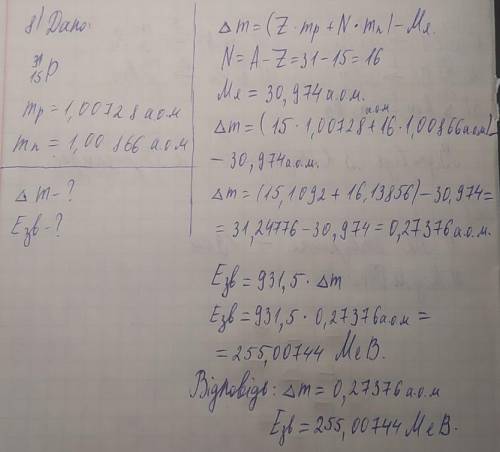 8) Дано:
³¹₁₅P
mp = 1,00728 а.о.м
mn = 1,00866 а.о.м
Δm - ?
Eзв - ?
Δm = (Z · mp + N · mn) - Mя.
N = A - Z = 31 - 15 = 16
Mя = 30,974 а.о.м.
Δm = (15 · 1,00728 а.о.м + 16 · 1,00866 а.о.м)
- 30,974 а.о.м.
Δm = (15,1092 + 16,13856) - 30,974 =
= 31,24776 - 30,974 = 0,27376 а.о.м.
Eзв = 931,5 · Δm
Eзв = 931,5 · 0,27376 а.о.м =
= 255,00744 МеВ.
Відповідь: Δm = 0,27376 а.о.м
Eзв = 255,00744 МеВ.